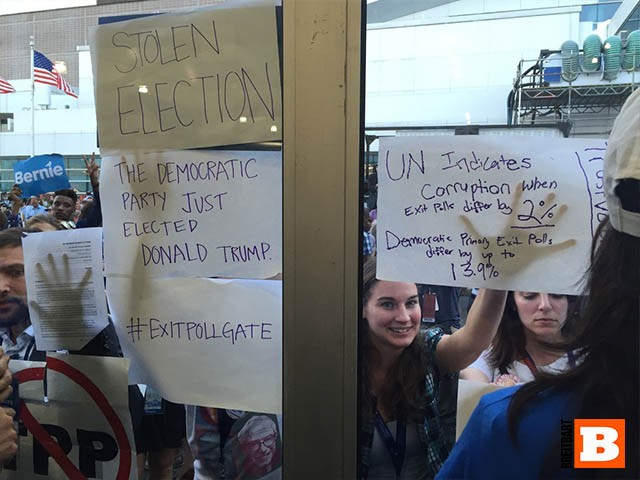 STOLEN
ELECTION
Bernie
THE DEMOCRATIC
PARTY JUST
ELECTED
DONALD TRUMP.
#EXITPOLLGATE
TPP
UN Indicates
Corruption When
Exit Polls differ by 2%
Democratic Primary Exit Polls
differ by up to
13.9%
BREITBART
B